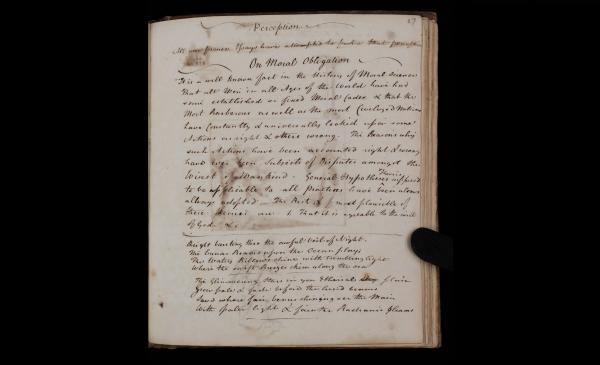 Perception
27
As our former Essays have attempted to
On Moral Obligation
It is a well known fact in the History of Moral Science
that all Men in all Ages of the World have had
some established or fixed Moral Codes & that the
Most Barbarous as well as the most Civilized Nations
have Constantly & universally looked upon some
Actions as right & others wrong. The Reasons why
such Actions have been accounted right & wrong
have ever been Subjects of Disputes amongst the
Wisest of Mankind - General Hypotheses supposed
to be applicable to all practices have been
always adopted - The first & most plausible of
these are 1 That it is agreeable to the will
of God. &
Bright bursting thro the awful Veil of Night
The Lunar Beams upon the Ocean play
The Waters Billows shine with trembling light
Where the swift Breezes skim along the sea
The Glimmering Stars in yon Ethereal plain
Grow pale & fade before the lucid beams
Save where fair Venus shining o'er the Main
With paler light & fainter Radiance Gleams